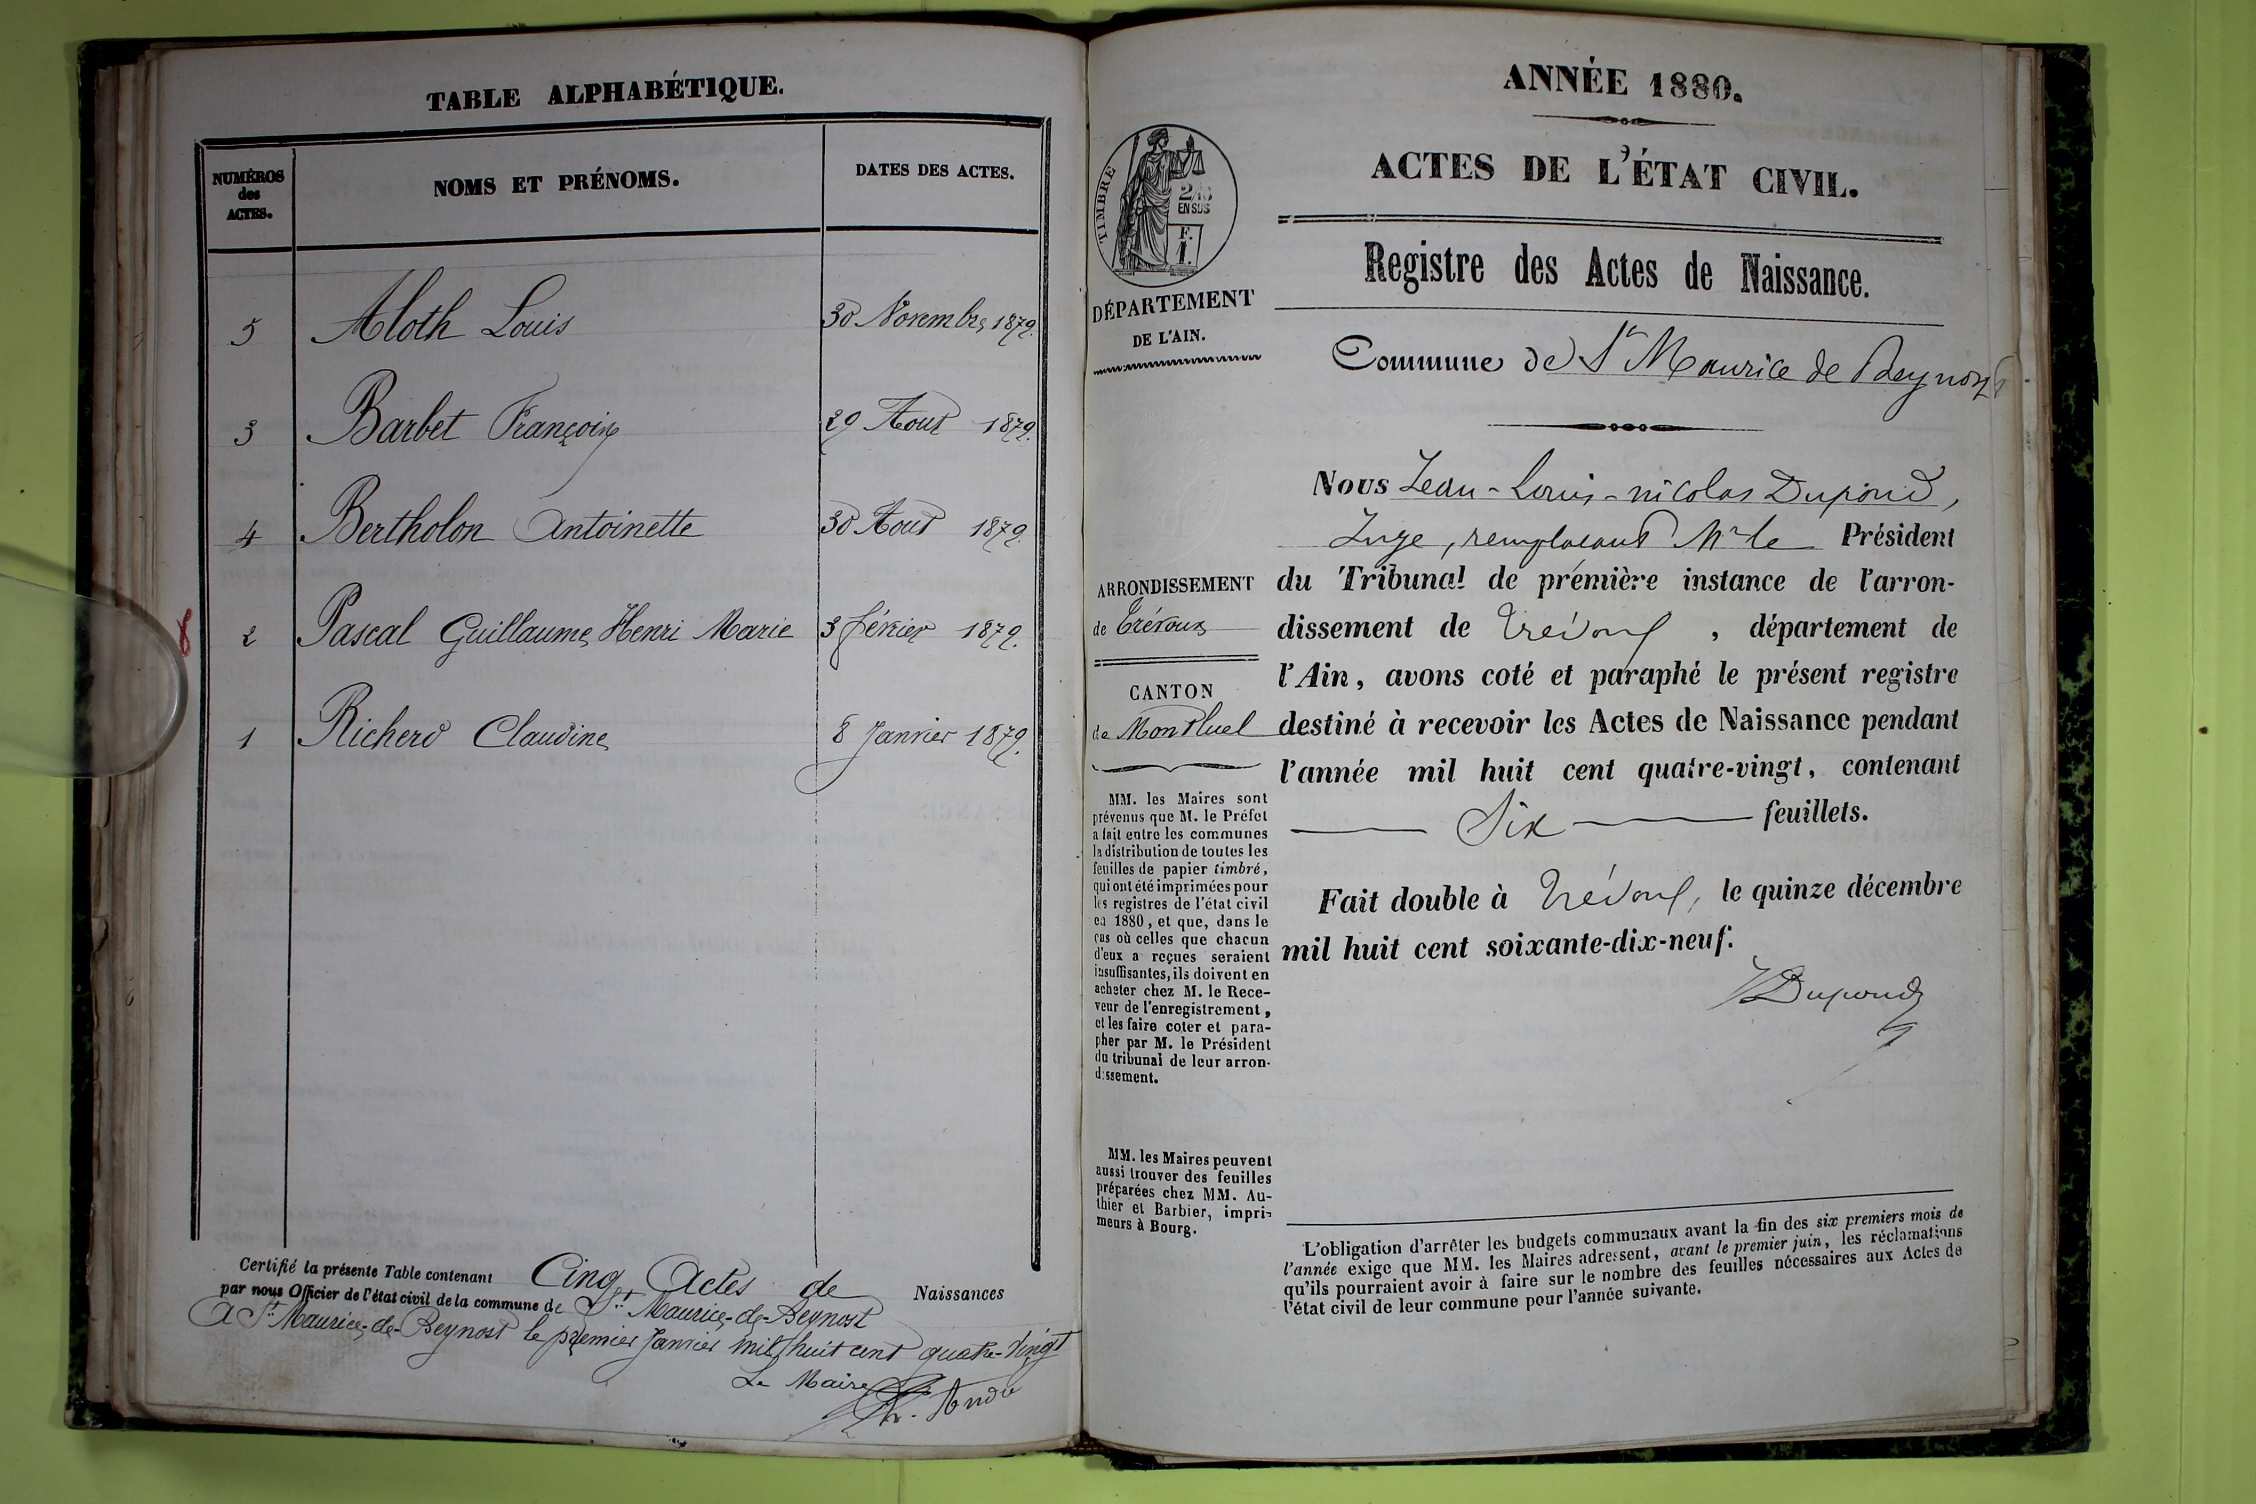 TABLE ALPHABÉTIQUE.
NUMÉROS
des
ACTES.
NOMS ET PRÉNOMS.
DATES DES ACTES.
5 Aloth Louis 30 Novembre 1879.
3 Barbet François 29 Aout 1879.
4 Bertholon Antoinette 30 Aout 1879.
2 Pascal Guillaume Henri Marie 3 février 1879.
1 Richerd Claudine 8 Janvier 1879.
8
Certifié la présente Table contenant Cinq Actes de Naissances
par nous Officier de l'état civil de la commune de St Maurice-de-Beynost
A St Maurice-de-Beynost le premier Janvier mil huit cent quatre-vingt
Le Maire
ANNÉE 1880.
ACTES DE L'ÉTAT CIVIL.
TIMBRE
2/10
EN SUS
F.
1.
DÉPARTEMENT
DE L'AIN.
Registre des Actes de Naissance.
Commune de St Maurice de Beynost
Nous Jean-Louis-nicolas Dupond,
Juge, remplacant Mr le Président
du Tribunal de prémière instance de l'arron-
dissement de Trévoux, département de
l'Ain, avons coté et paraphé le présent registre
destiné à recevoir les Actes de Naissance pendant
l'année mil huit cent quatre-vingt, contenant
Six feuillets.
Fait double à Trévoux, le quinze décembre
mil huit cent soixante-dix-neuf.
Dupond
ARRONDISSEMENT
de Trévoux
CANTON
de Montluel
MM. les Maires sont
prévenus que M. le Préfet
a fait entre les communes
la distribution de toutes les
feuilles de papier timbré,
qui ont été imprimées pour
les registres de l'état civil
en 1880, et que, dans le
cas où celles que chacun
d'eux a reçues seraient
insuffisantes, ils doivent en
acheter chez M. le Rece-
veur de l'enregistrement,
et les faire coter et para-
pher par M. le Président
du tribunal de leur arron-
dissement.
MM. les Maires peuvent
aussi trouver des feuilles
préparées chez MM. Au-
thier et Barbier, impri-
meurs à Bourg.
L'obligation d'arrêter les budgets communaux avant la fin des six premiers mois de
l'année exige que MM. les Maires adressent, avant le premier juin, les réclamations
qu'ils pourraient avoir à faire sur le nombre des feuilles nécessaires aux Actes de
l'état civil de leur commune pour l'année suivante.